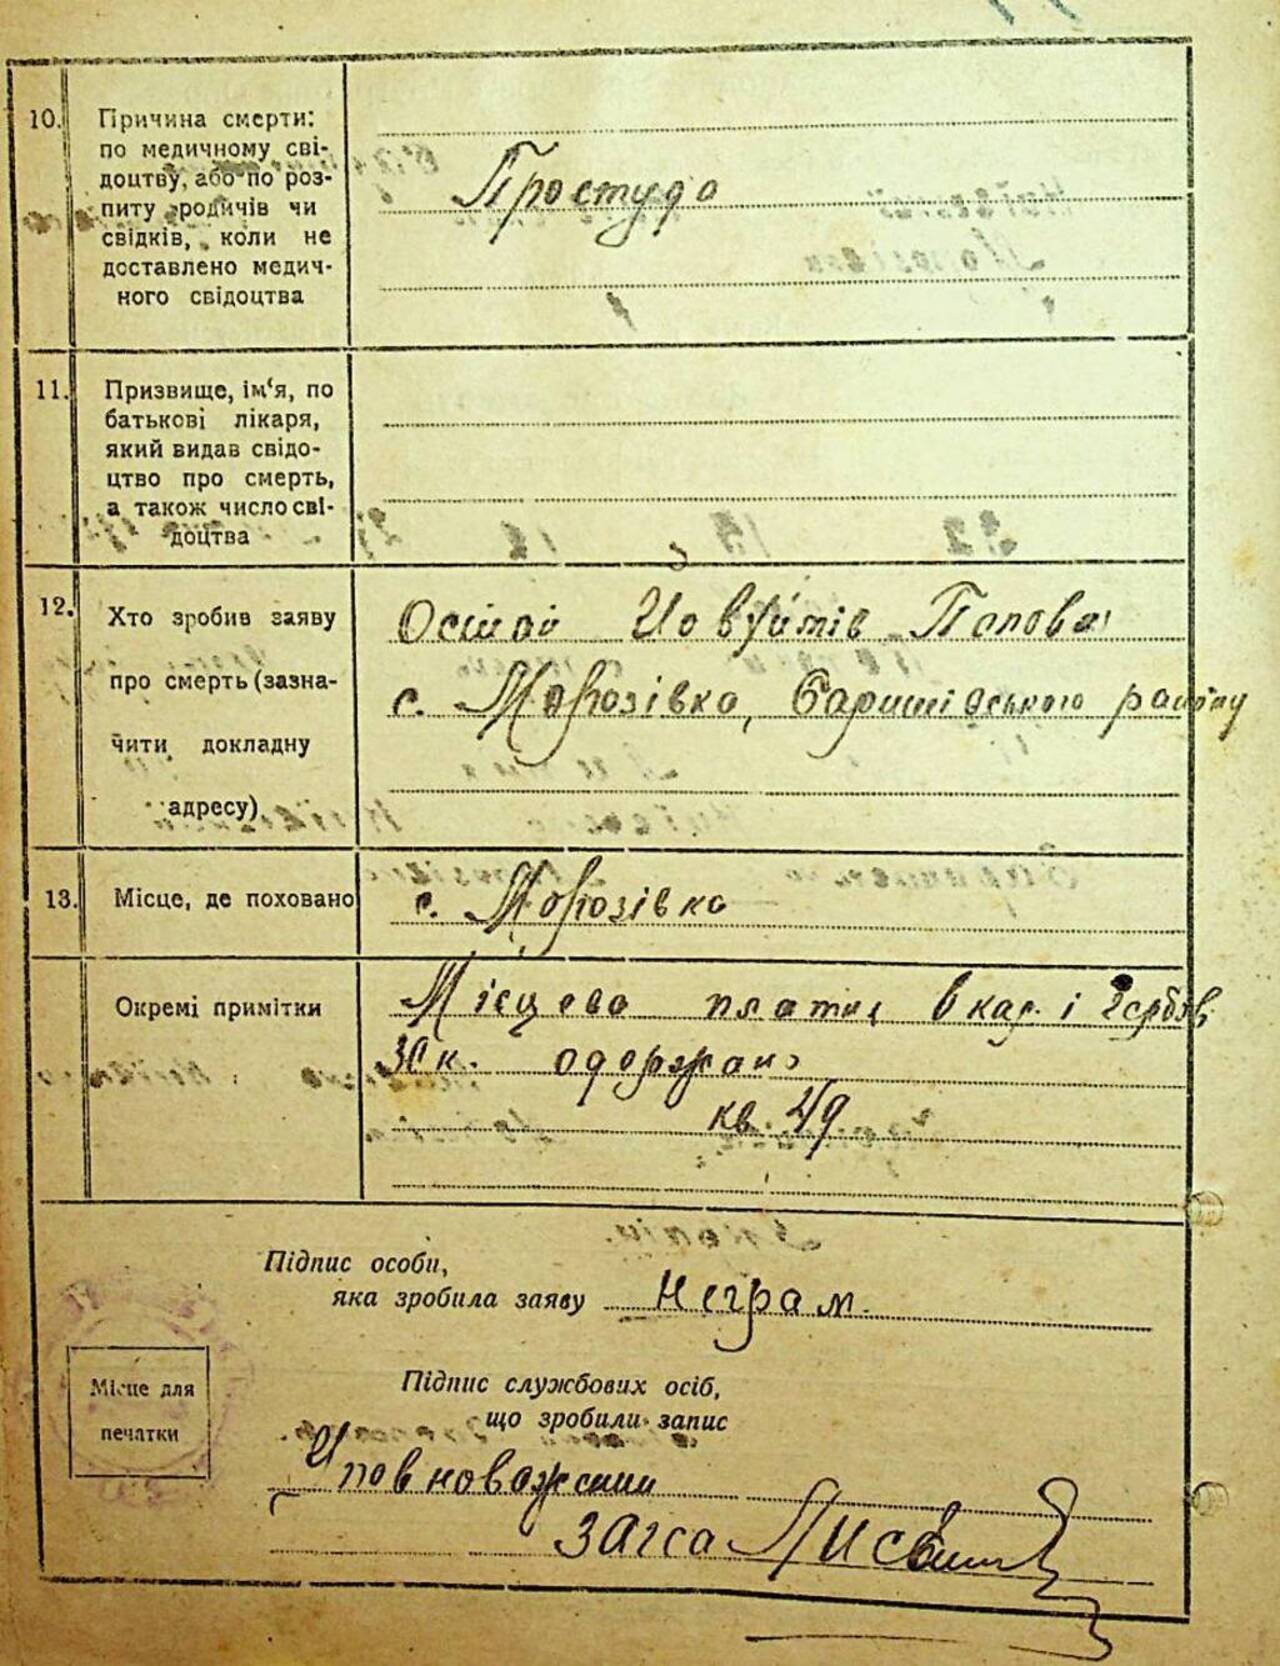 10.
Причина смерти:
по медичному сві-
доцтву, або по роз-
питу родичів чи
свідків, коли не
доставлено медич-
ного свідоцтва
Простудо
11.
Призвище, ім‘я, по
батькові лікаря,
який видав свідо-
цтво про смерть,
а також число сві-
доцтва
12.
Хто зробив заяву
про смерть (зазна-
чити докладну
адресу)
с. Морозівка, Баришівського району
13.
Місце, де поховано
с. Морозівка
Окремі примітки
Місцево платил в кар. і
30 к. одержано
кв. 49
Підпис особи,
яка зробила заяву Неграм.
Місце для
печатки
Підпис службових осіб,
що зробили запис
Уповноважений
загса